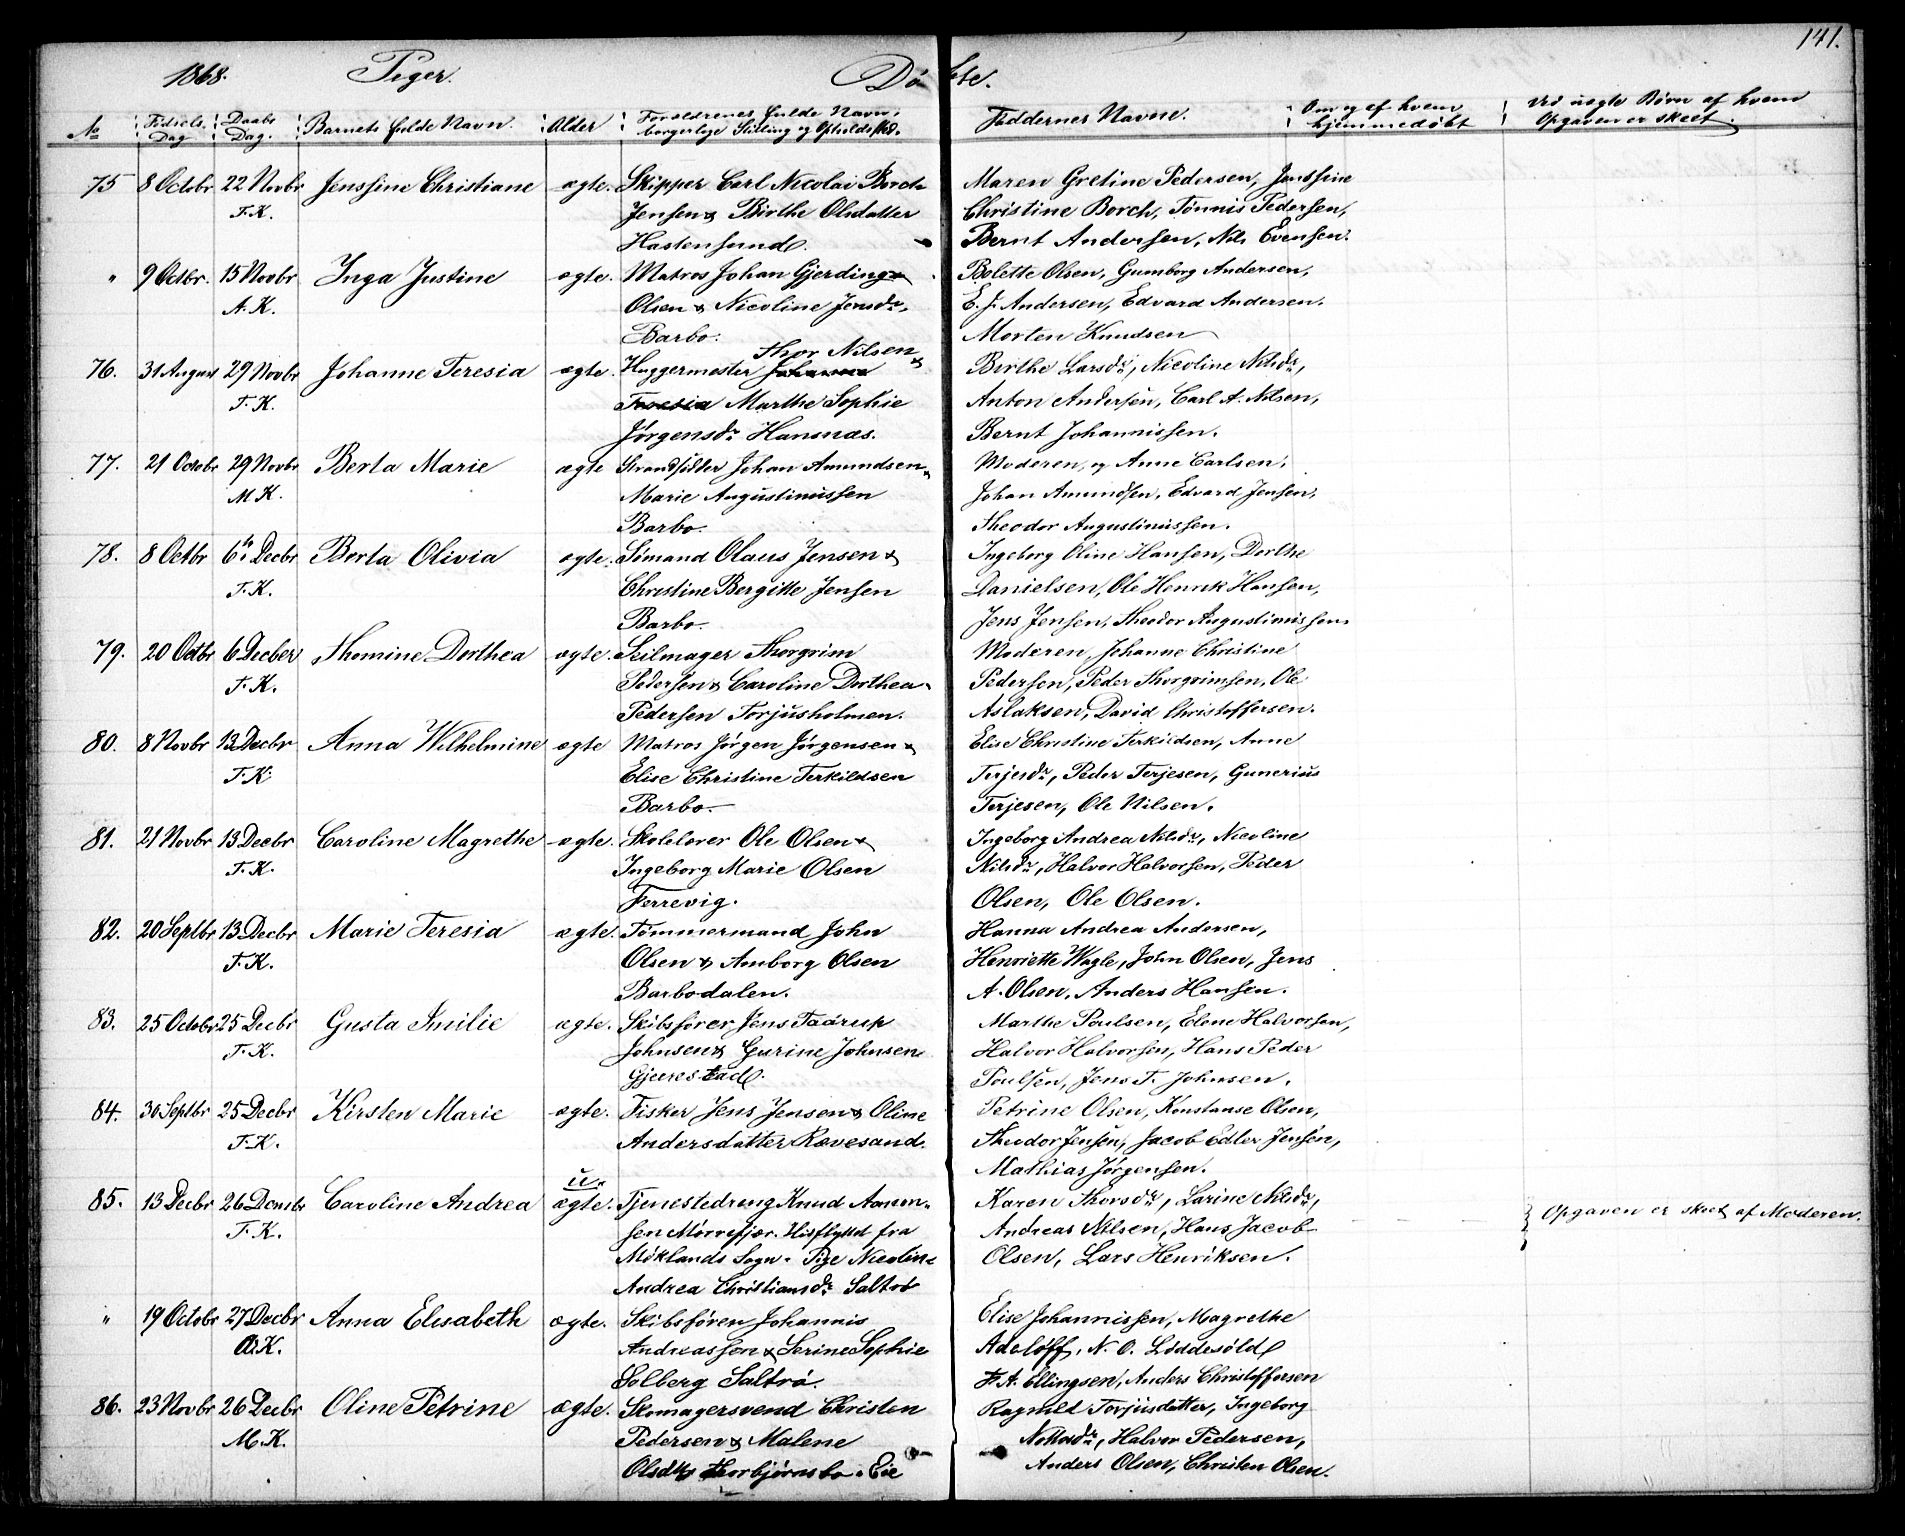 141.
1868. Piger. Døbte.
No | Fødsels Dag | Daabs Dag. | Barnets fulde Navn. | Alder | Forældrenes fulde Navn, borgerlige Stilling og Opholdssted. | Faddernes Navne. | Om og af hvem hjemmedøbt | Ved uægte Børn af hvem Opgaven er skeet.
75 8 Octobr 22 Novbr Jenssine Christiane ægte. Skipper Carl Nicolai Borch Maren Gretine Pedersen, Jenssine
F.K. Jensen & Birthe Olsdatter Christine Borch, Tønnis Pedersen,
Hastensund. Bernt Andersen, Nils Evensen.
" 9 Octbr. 15 Novbr Inga Justine ægte. Matros Johan Gjerding Bolette Olsen, Gumborg Andersen,
A.K. Olsen & Nicoline Jensdr. E. J. Andersen, Edvard Andersen.
Barbo. Morten Knudsen
Thor Nilsen &
76. 31 August 29 Novbr Johanne Teresia ægte. Huggermester Johanne Birthe Larsdr, Nicoline Nilsdr,
F.K. Teresia Marthe Sophie Anton Andersen, Carl A. Nilsen,
Jørgensdr Hansnæs. Bernt Johannissen.
77. 21 Octobr 29 Novbr Berta Marie ægte Strandsidder Johan Amundsen & Moderen, og Anne Carlsen.
M.K. Marie Augustinussen Johan Amundsen, Edvard Jensen,
Barbo. Theodor Augustinussen.
78. 8 Octbr 6te Decbr Berta Olivia ægte. Sømand Olaus Jensen & Ingeborg Oline Hansen, Dorthe
F.K. Christine Bergitte Jensen Danielsen, Ole Henrik Hansen,
Barbo. Jens Jensen, Theodor Augustinussen
79. 20 Octbr 6 Decber Thomine Dorthea ægte. Seilmager Thorgrim Moderen, Johanne Christine
F.K. Pedersen & Caroline Dorthea Pedersen, Peder Thorgrimsen, Ole
Pedersen Torjusholmen. Aslaksen, David Christoffersen.
80. 8 Novbr 13 Decbr Anna Wilhelmine ægte Matros Jørgen Jørgensen & Elise Christine Terkildsen, Anne
F.K. Elise Christine Terkildsen Terjesdr, Peder Terjesen, Gunerius
Barbo. Terjesen, Ole Nilsen.
81. 21 Novbr 13 Decbr Caroline Magrethe ægte. Skolelærer Ole Olsen & Ingeborg Andrea Nilsdr, Nicoline
F.K. Ingeborg Marie Olsen Nilsdr, Halvor Halvorsen, Peder
Ferrevig. Olsen, Ole Olsen.
82. 20 Septbr 13 Decbr Marie Teresia ægte. Tømmermand John Hanna Andrea Andersen,
F.K. Olsen & Amborg Olsen Henriette Wagle, John Olsen, Jens
Barbodalen. A. Olsen, Anders Hansen.
83. 25 Octobr 25 Decbr Gusta Imilie ægte. Skibsfører Jens Taarup Marthe Poulsen, Elene Halvorsen,
F.K. Johnsen & Gurine Johnsen Halvor Halvorsen, Hans Peder
Gjerestad. Poulsen, Jens T. Johnsen.
84. 30 Septbr 25 Decbr Kirsten Marie ægte. Fisker Jens Jensen & Oline Petrine Olsen, Konstanse Olsen,
F.K. Andersdatter Rævesand. Theodor Jensen, Jacob Edler Jensen,
Mathias Jørgensen.
u.
85. 13 Decbr 26 Decmbr Caroline Andrea ægte. Tjenestedreng Knud Aanon- Karen Thorsdr, Larine Nilsdr, Opgaven er skeet af Moderen.
F.K. sen Mørrefjær. Hisflyttet fra Andreas Nilsen, Hans Jacob
Moklands Sogn. Pige Nicoline Olsen, Lars Henriksen.
Andrea Christiansdr Saltrø
" 19 Octobr 27 Decbr Anna Elisabeth ægte. Skibsføren Johannis Elise Johannissen, Magrethe
Ø.K. Andreassen & Serine Sophie Adeløff, N. O. Løddesøld
Solberg Saltrø. F. A. Ellingsen, Anders Christoffersen
86. 23 Novbr 26 Decbr Oline Petrine ægte. Skomagersvend Christen Ragnild Torjusdatter, Ingeborg
M.K. Pedersen & Malene Halvor Pedersen,
Olsdtr Thorbjørnsbo. Eie Anders Olsen, Christen Olsen.